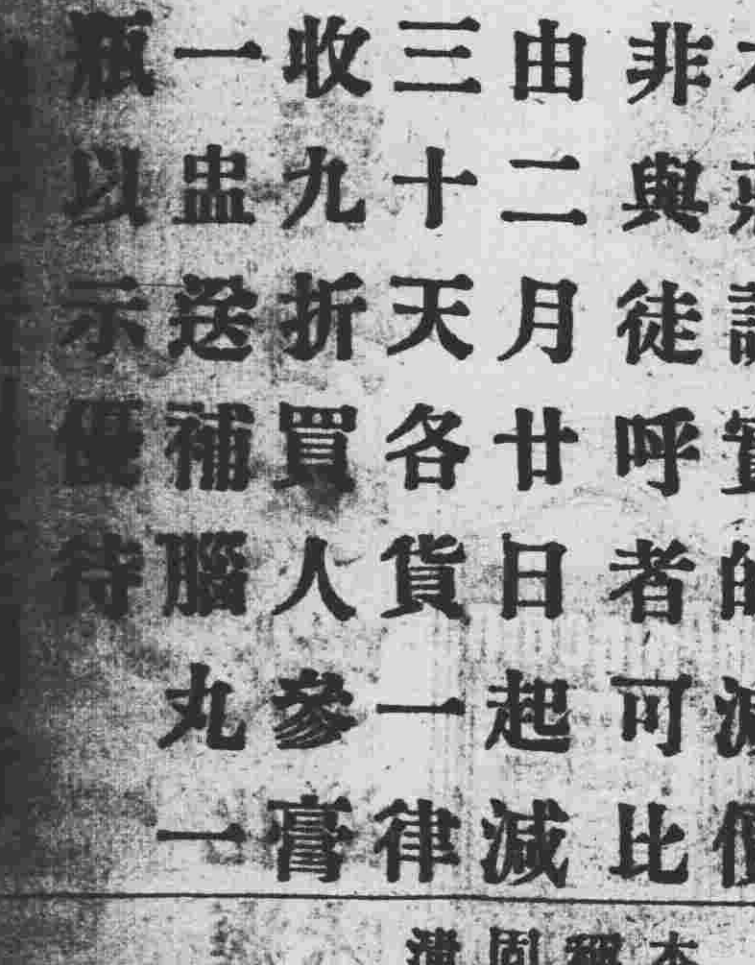 非與徒呼者可比
由二月廿日起減
三十天各貨一律
收九折買人參膏
一盅送補腦丸一
瓶以示優待